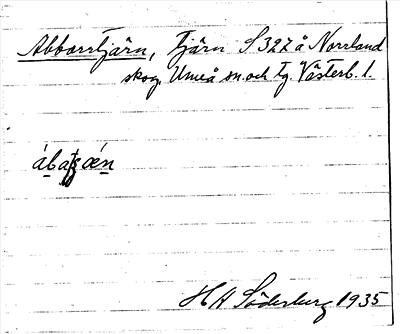 Abborrtjärn, Tjärn S 327 å Norrland
skog. Umeå sn. och tg. Västerb. l.
H A Söderburg 1935